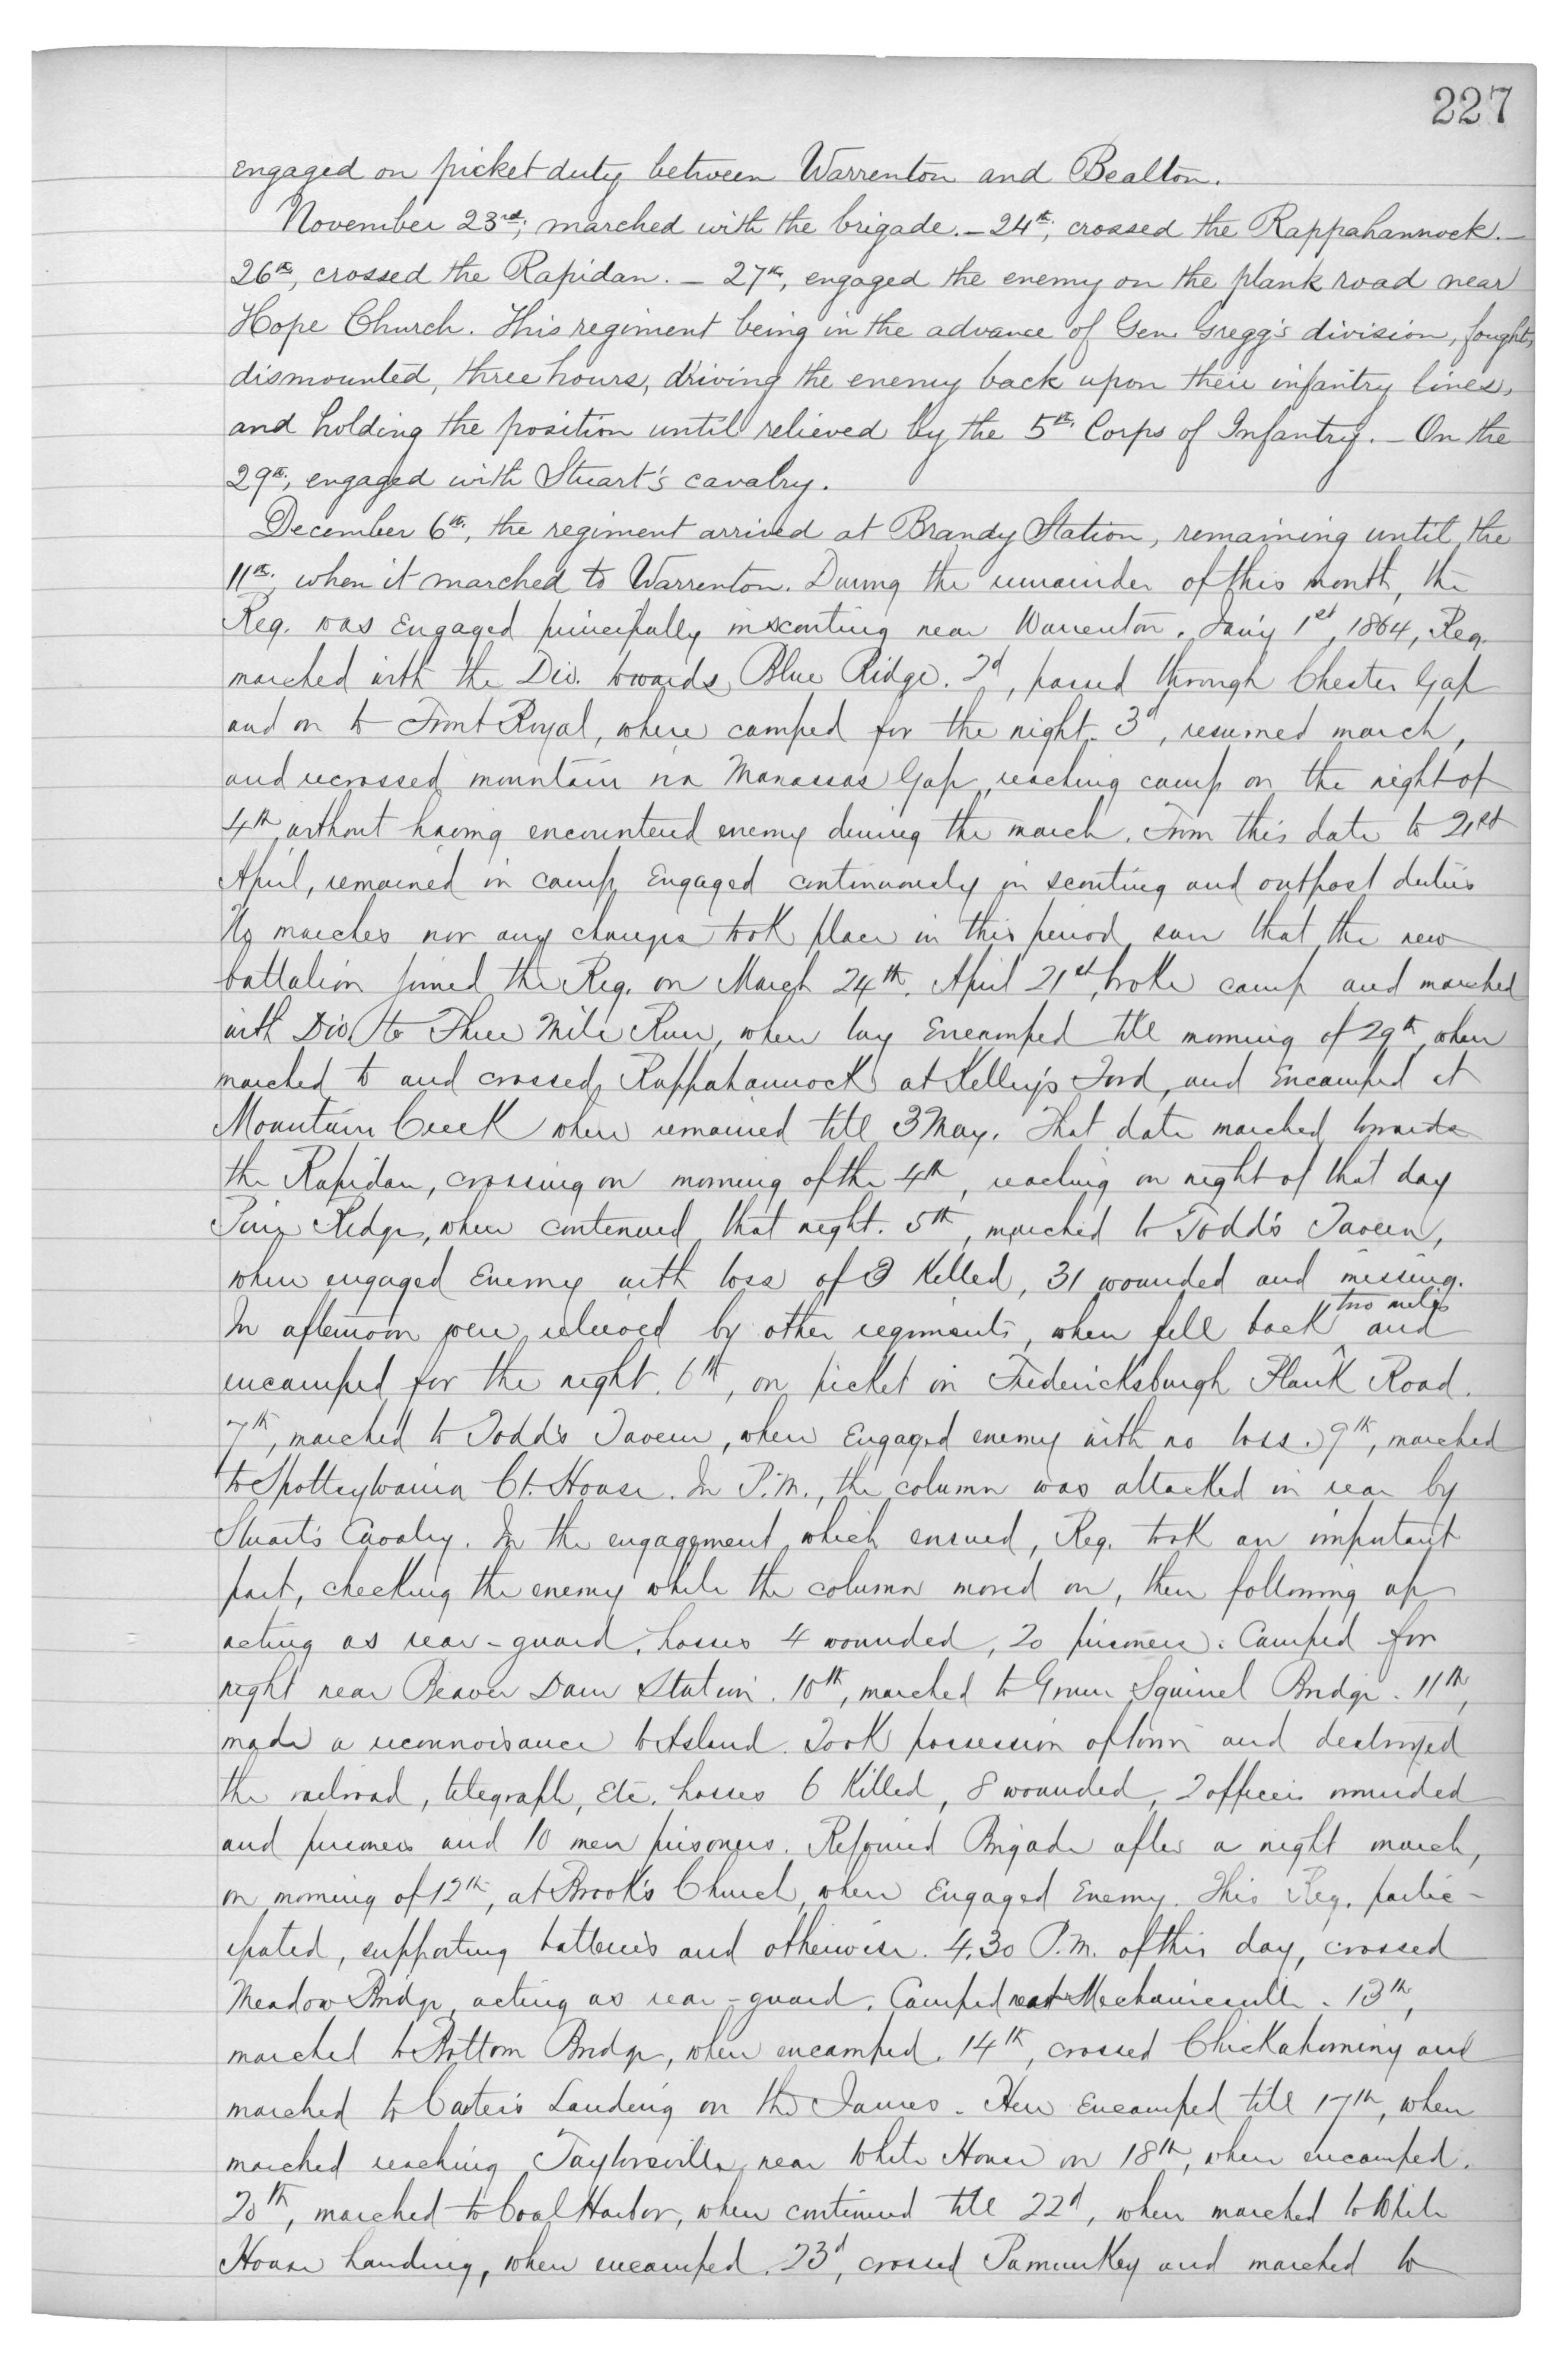 227
engaged on picket duty between Warrenton and Bealton.
November 23rd, marched with the brigade. – 24th, crossed the Rappahannock. –
26th, crossed the Rapidan. – 27th, engaged the enemy on the plank road near
Hope Church. This regiment being in the advance of Gen. Gregg's division, fought,
dismounted, three hours, driving the enemy back upon their infantry lines,
and holding the position until relieved by the 5th Corps of Infantry. – On the
29th, engaged with Stuart's cavalry.
December 6th, the regiment arrived at Brandy Station, remaining until the
11th, when it marched to Warrenton. During the remainder of this month, the
Reg. was engaged principally in scouting near Warrenton. Jan'y 1st, 1864, Reg.
marched with the Div. towards Blue Ridge. 2d, passed through Chester Gap
and on to Front Royal, where camped for the night. 3d, resumed march,
and recrossed mountain via Manassas Gap, reaching camp on the night of
4th, without having encountered enemy during the march. From this date to 21st
April, remained in camp, engaged continuously in scouting and outpost duties
No marches nor any changes took place in this period, save that the new
battalion joined the Reg. on March 24th. April 21st, broke camp and marched
with Div. to Three Mile Run, where lay encamped till morning of 29th, when
marched to and crossed Rappahannock at Kelley's Ford, and encamped at
Mountain Creek where remained till 3 May. That date marched towards
the Rapidan, crossing on morning of the 4th, reaching on night of that day
Piny Ridge, where continued that night. 5th, marched to Todd's Tavern,
where engaged enemy with loss of 3 killed, 31 wounded and missing.
In afternoon were relieved by other regiments, when fell back two miles and
encamped for the night. 6th, on picket on Fredericksburgh Plank Road.
7th, marched to Todd's Tavern, where engaged enemy with no loss. 9th, marched
to Spottsylvania Ct. House. In P.M., the column was attacked in rear by
Stuart's Cavalry. In the engagement which ensued, Reg. took an important
part, checking the enemy while the column moved on, then following up
acting as rear-guard. Losses 4 wounded, 20 prisoners. Camped for
night near Beaver Dam Station. 10th, marched to Ground Squirrel Bridge. 11th,
made a reconnoisance to Ashland. Took possession of town and destroyed
the railroad, telegraph, etc. Losses 6 killed, 8 wounded, 2 officers wounded
and prisoners and 10 men prisoners. Rejoined Brigade after a night march,
on morning of 12th, at Brook's Church, where engaged enemy. This Reg. partic-
ipated, supporting batteries and otherwise. 4.30 P.M. of this day, crossed
Meadow Bridge, acting as rear-guard. Camped near Mechanicsville. 13th,
marched to Bottom Bridge, where encamped. 14th, crossed Chickahominy and
marched to Carter's Landing on the James. Here encamped till 17th, when
marched reaching Taylorsville, near White House on 18th, where encamped.
20th, marched to Coal Harbor, where continued till 22d, when marched to White
House Landing, where encamped. 23d, crossed Pamunkey and marched to